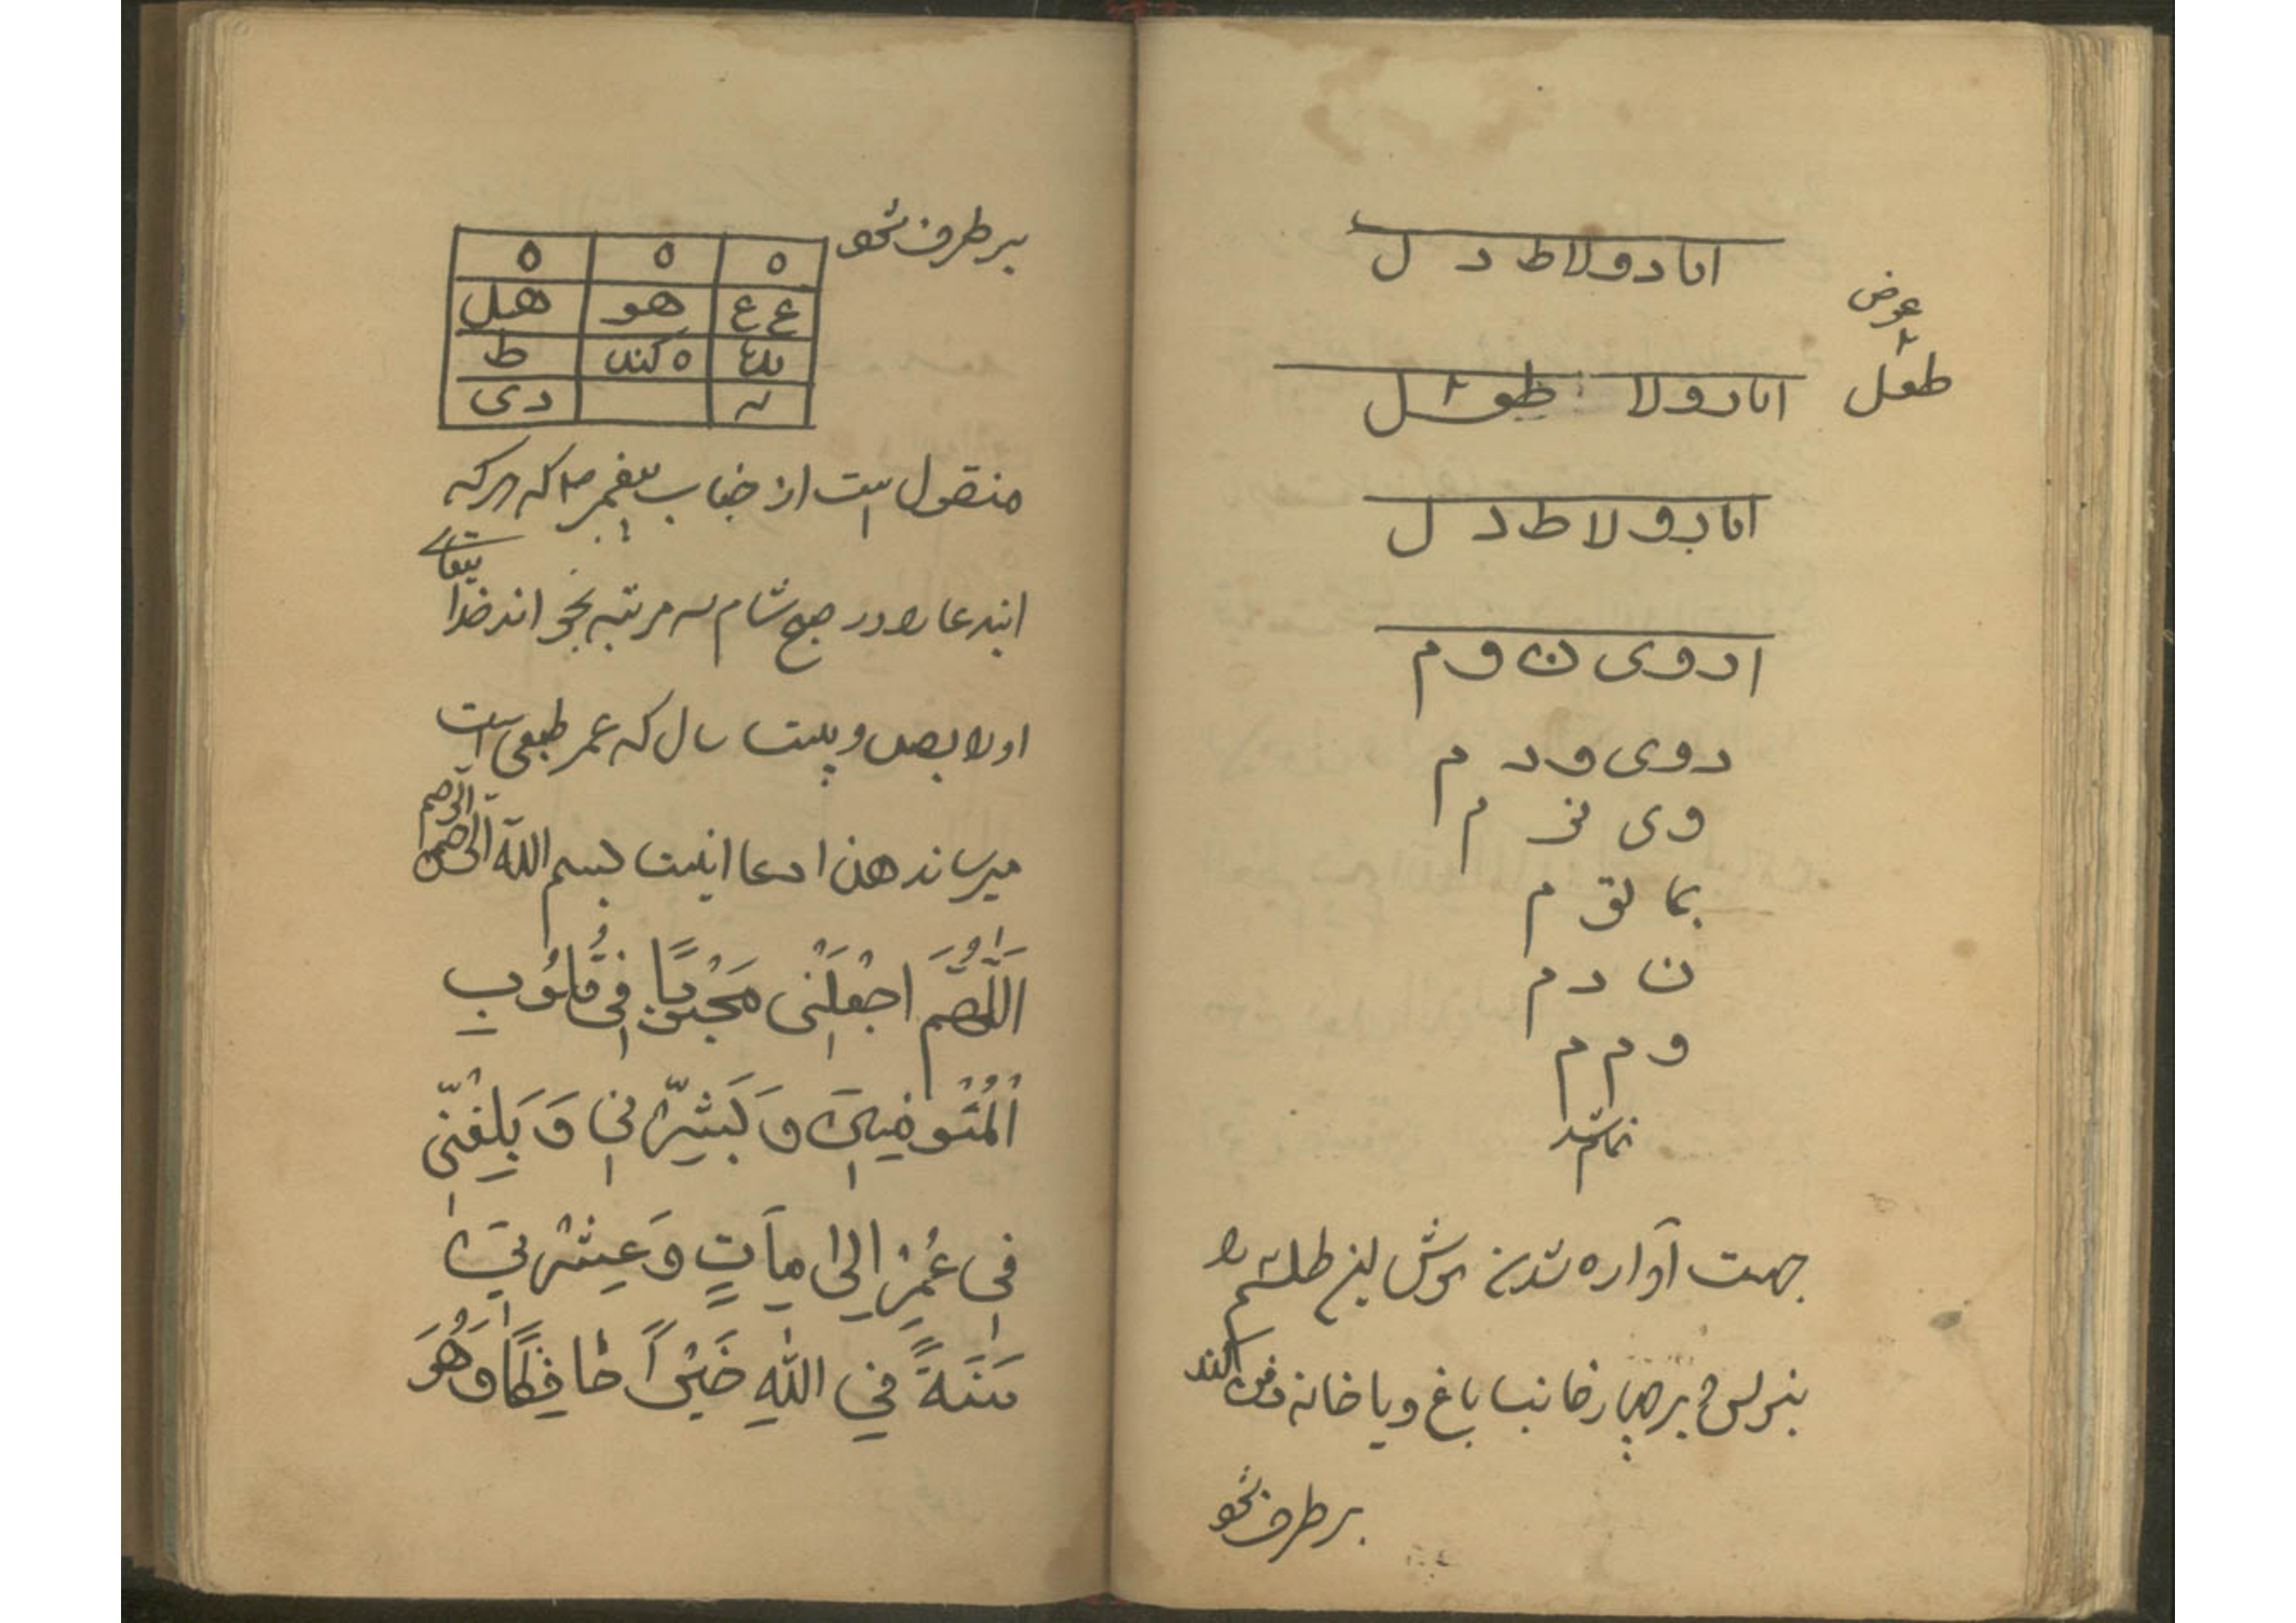 انا دو لا ط د ل
عوض
انا دو لا طعل
طعل
انا دو لا ط د ل
ا د و ی ن و م
د و ی و د م
و ی نز م
بما لق م
ن د م
و م م
تمام شد
جهت آواره شدن موش این طلسم را
بنویس و بر چهار خانب باغ و یا خانه دفن کند
بر طرف شو
بر طرف شو
ه ه ه
ع ع هو هل
ه کند ط
دی
منقول است از جناب پیغمبر ص که هر که
ایندعا را در صبح شام سه مرتبه بخواند خدا
اورا بصد و بیست سال که عمر طبیعی است
میرساند هذا دعا اینست بسم الله الرحمن الرحیم
اَللّٰهُمَّ اجْعَلْنی مَحْبُوبًا فِی قُلُوبِ
الْمُتَوفِینَ وَ بَشِّرْنِی وَ بَلِغْنّی
فِی عُمْرِ اِلیٰ مِأَتٍ وَ عِشْرِینَ
سَنَةً فِی اللّٰهِ خَیْرًا حٰافِظًا وَهُوَ